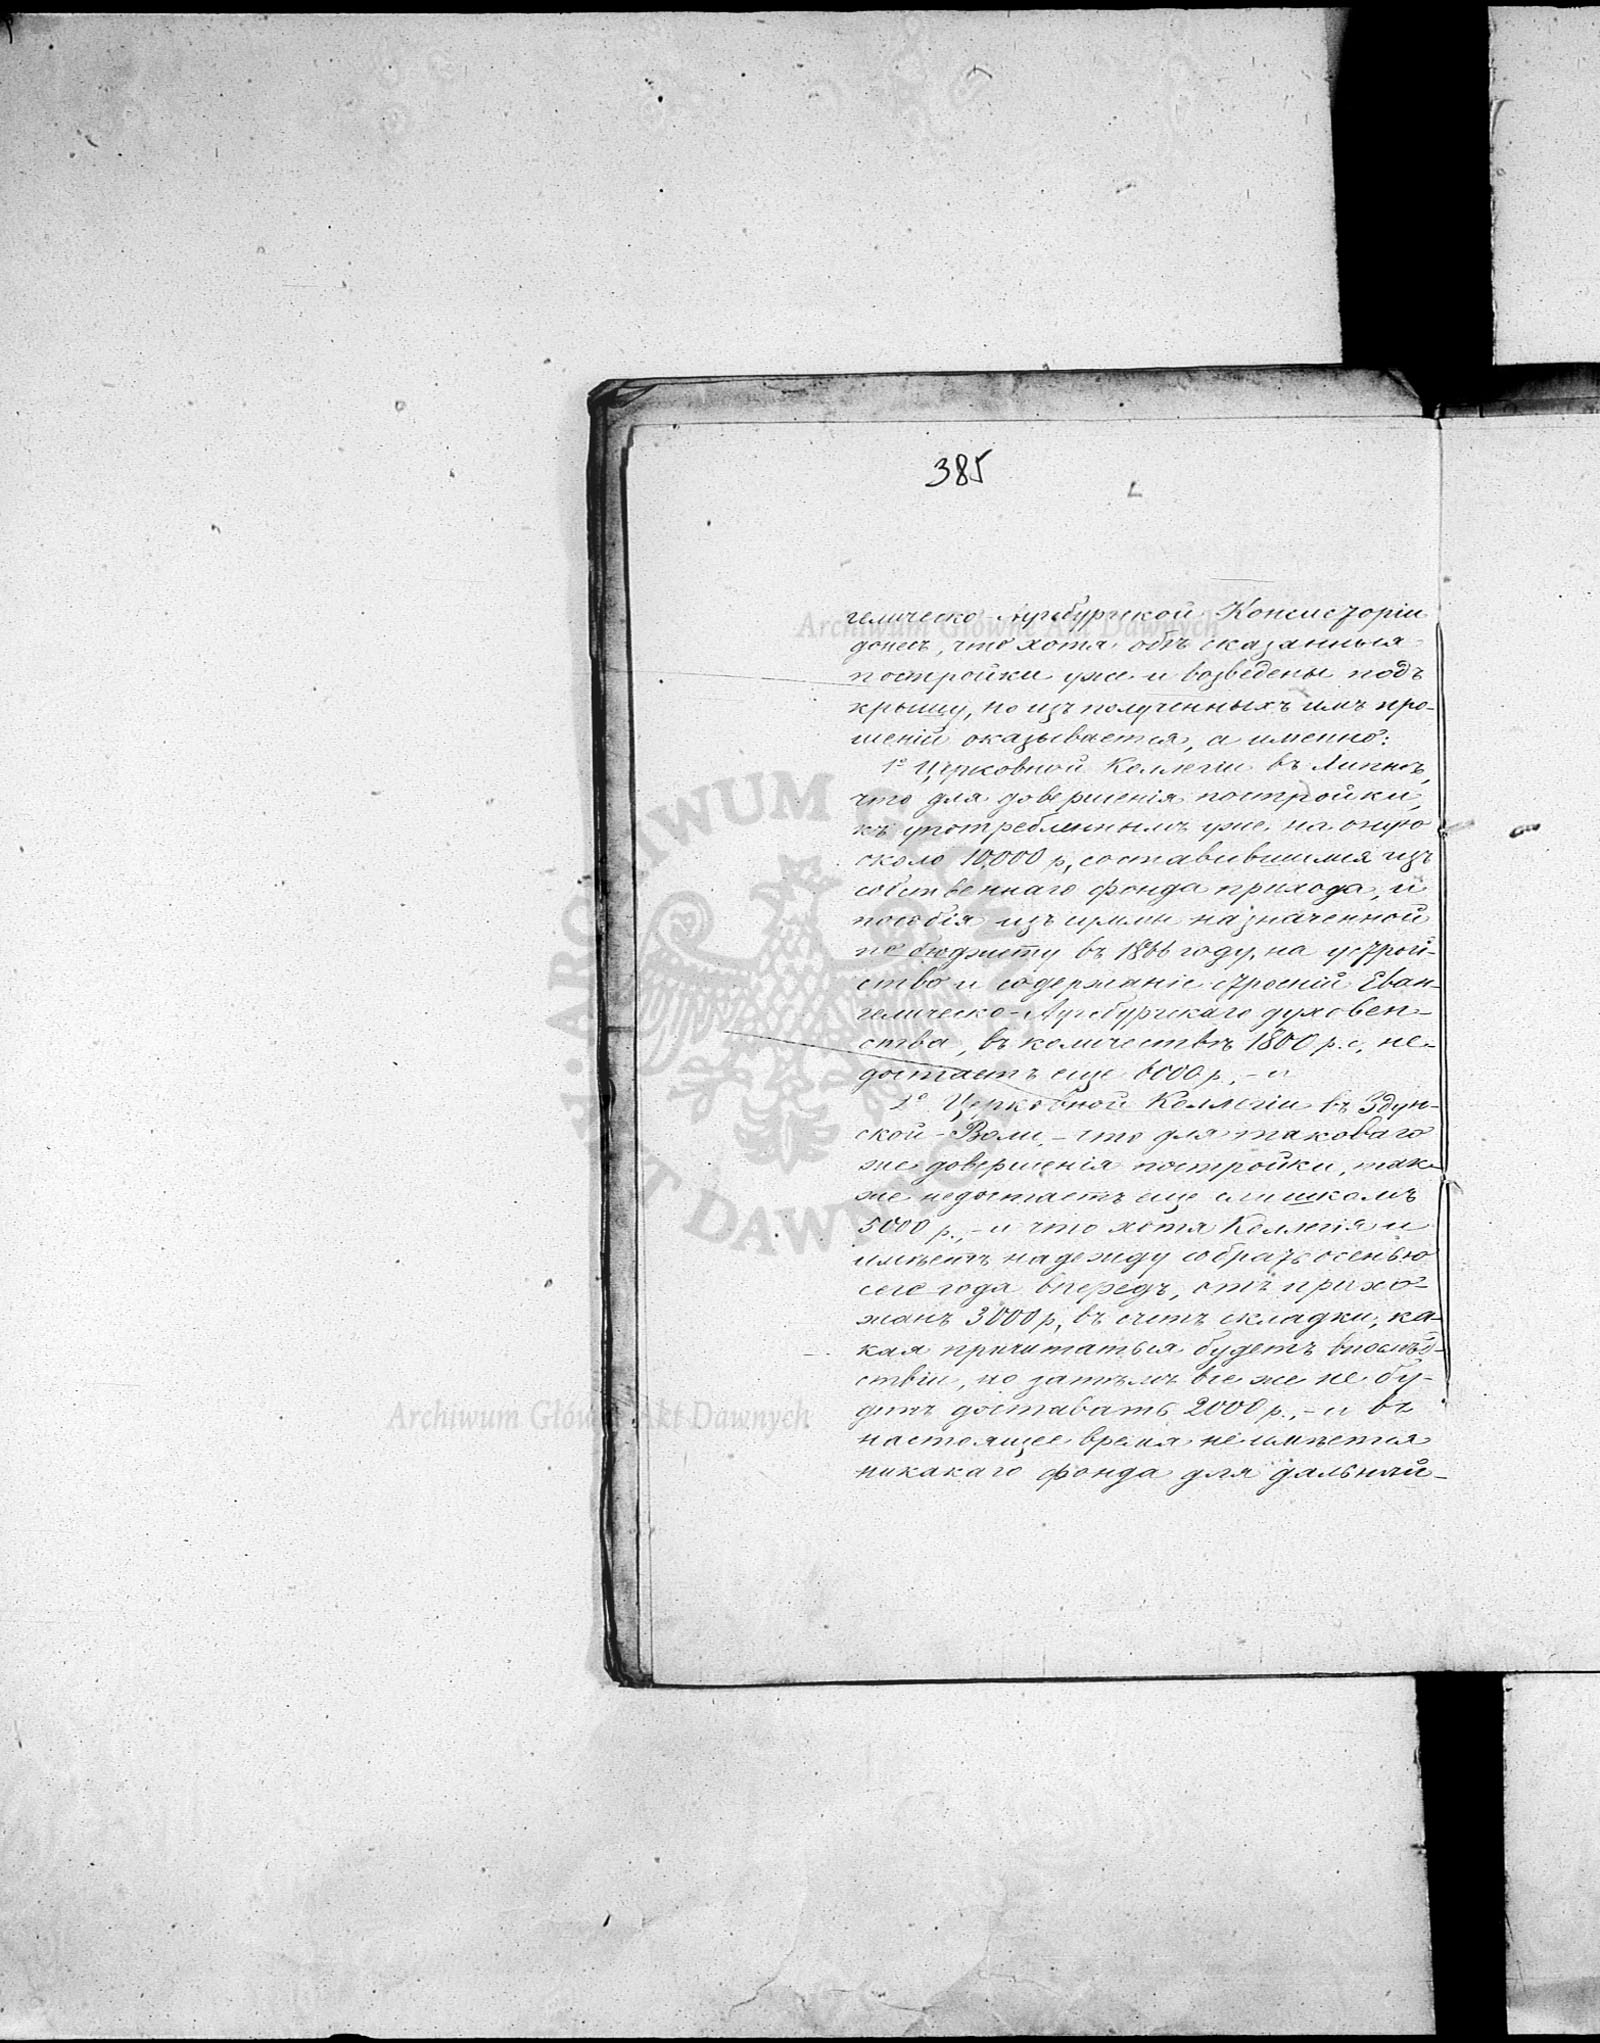 385
гелическо-Аугсбургской Консисторіи
донесъ, что хотя обѣ сказанныя
постройки уже и возведены подъ
крышу, но изъ полученныхъ имъ про-
шеній оказывается, а именно:
1º Церковной Коллегіи въ Липнѣ,
что для довершенія постройки,
къ употребленнымъ уже на оную
около 10,000 р, составившимся изъ
собственнаго фонда прихода, и
пособія изъ суммы назначенной
по бюджету въ 1866 году, на устрой-
ство и содержаніе строеній Еван-
гелическо-Аугсбургскаго духовен-
ства, въ количествѣ 1800 р. с, не-
достаетъ еще 6000 р, - и
2º Церковной Коллегіи въ Здун-
ской-Воли, - что для таковаго
же довершенія постройки, так-
же недостаетъ еще слишкомъ
5000 р., - и что хотя Коллегія и
имѣетъ надежду собрать осенью
сего года впередъ, отъ прихо-
жанъ 3000 р, въ счетъ складки, ка-
кая причитаться будетъ впослѣд-
ствіи, но затѣмъ все же не бу-
детъ доставать 2000 р., - и въ
настоящее время неимѣется
никакаго фонда для дальнѣй-
Archiwum Główne Akt Dawnych
Archiwum Główne Akt Dawnych